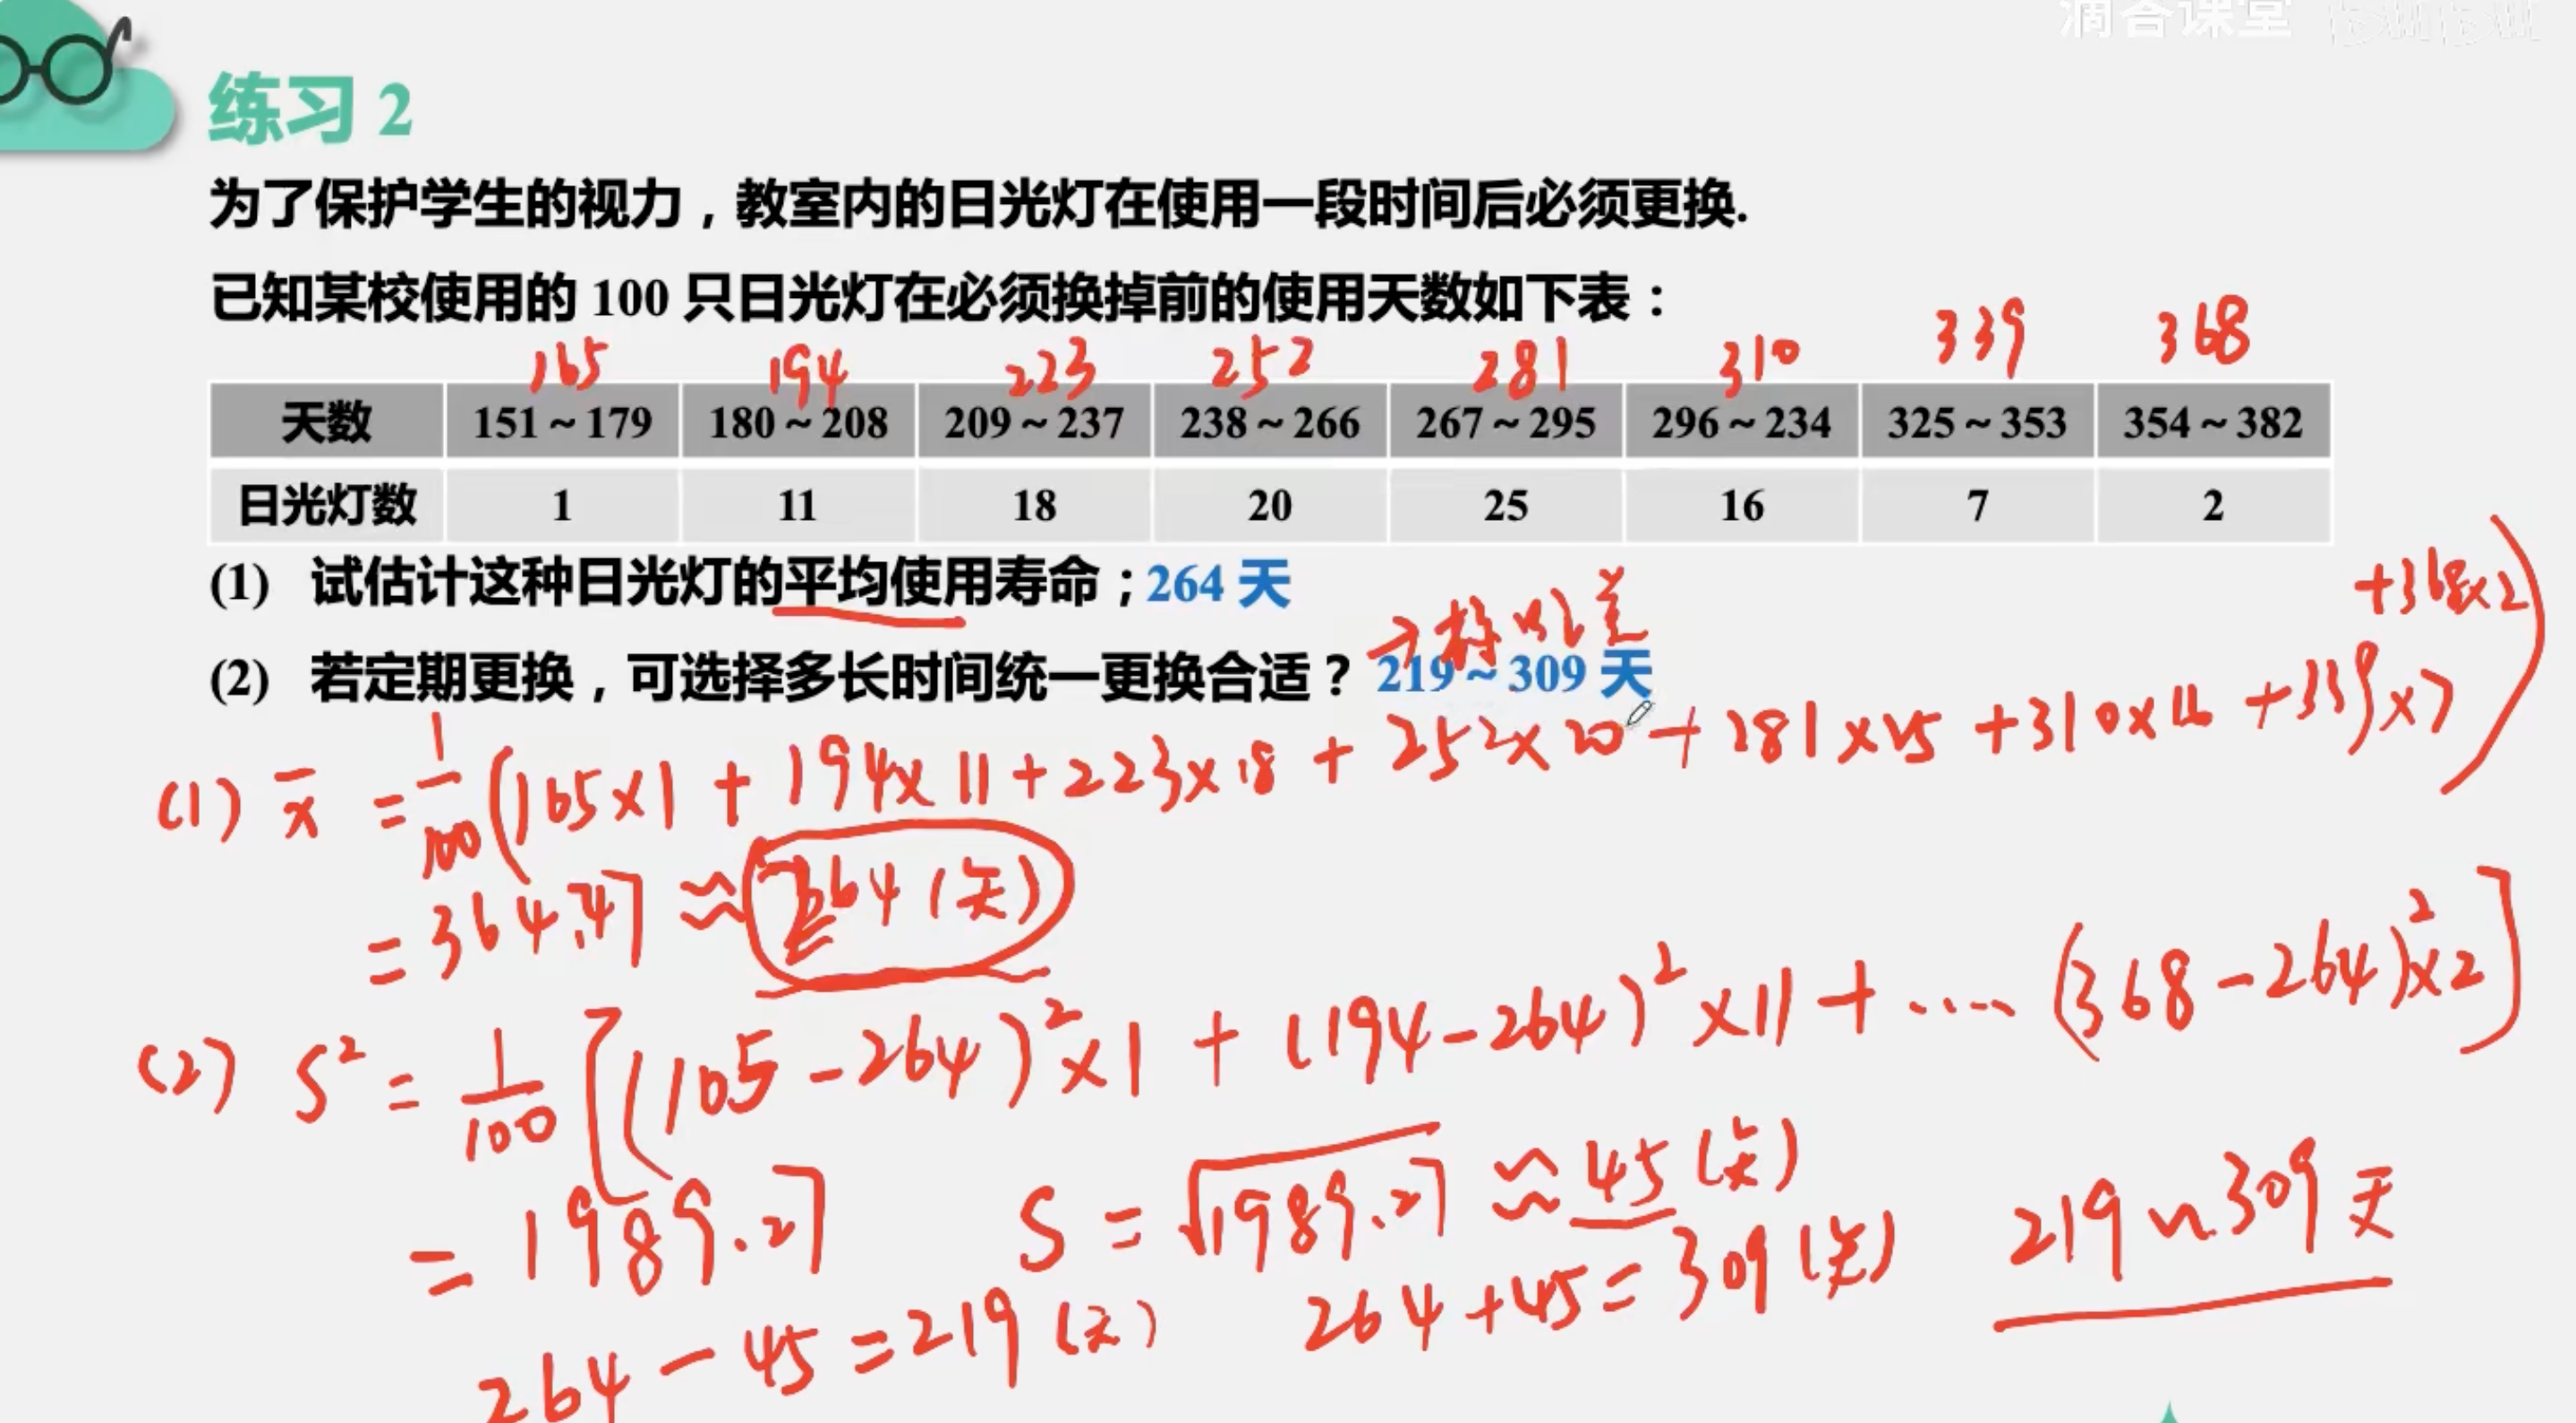 滴合课堂
练习 2
为了保护学生的视力，教室内的日光灯在使用一段时间后必须更换.
已知某校使用的 100 只日光灯在必须换掉前的使用天数如下表：
165 194 223 252 281 310 339 368
天数 151～179 180～208 209～237 238～266 267～295 296～234 325～353 354～382
日光灯数 1 11 18 20 25 16 7 2
(1) 试估计这种日光灯的平均使用寿命；264 天
→标准差
(2) 若定期更换，可选择多长时间统一更换合适？219～309 天
(1) x̄ = 1/100 (165×1 + 194×11 + 223×18 + 252×20 + 281×25 + 310×16 + 339×7 +368×2)
= 364.47 ≈ 264 (天)
(2) S² = 1/100 [(105-264)²×1 + (194-264)²×11 + .... (368-264)²×2]
= 1989.27 S = √1989.27 ≈ 45 (天)
264 - 45 = 219 (天) 264+45= 309 (天) 219~309 天